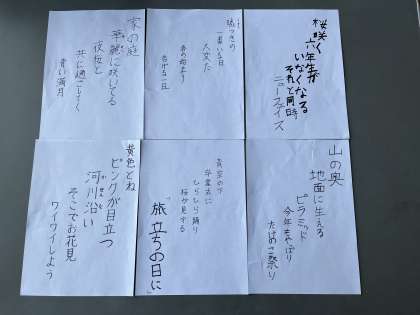 桜咲く
六年生が
いなくなる
それと同時
ニューフェイス
嘘つきの
一番いる日
告げる一日
家の庭
華麗に咲いてる
夜桜と
共に過ごしてく
青い満月
山の奥
地面に生える
ピラミッド
今年もやっぱり
たけのこ祭り
青空の下
卒業式に
ひらひら踊り
桜が見する
「旅立ちの日に」
黄色とね
ピンクが目立つ
河川沿い
そこでお花見
ワイワイしよう